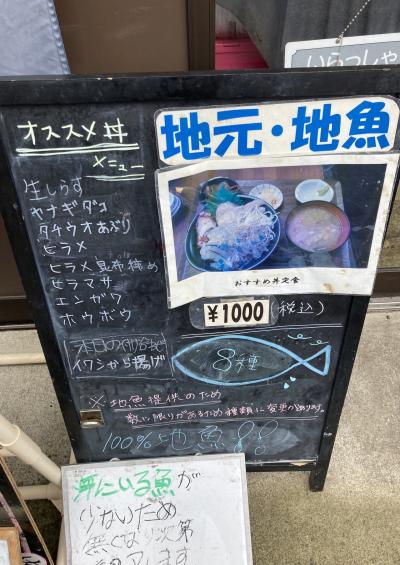 いらっしゃ
オススメ丼
メニュー
地元・地魚
生しらす
ヤナギダコ
タチウオあぶり
ヒラメ
ヒラメ昆布締め
ヒラマサ
エンガワ
ホウボウ
おすすめ丼定食
¥1000 (税込)
本日の付け合せ
イワシから揚げ
8種
※地魚提供のため
数に限りがあるため種類に変更があります。
100%地魚!!
丼にいる魚が
少ないため
無くなり次第
します